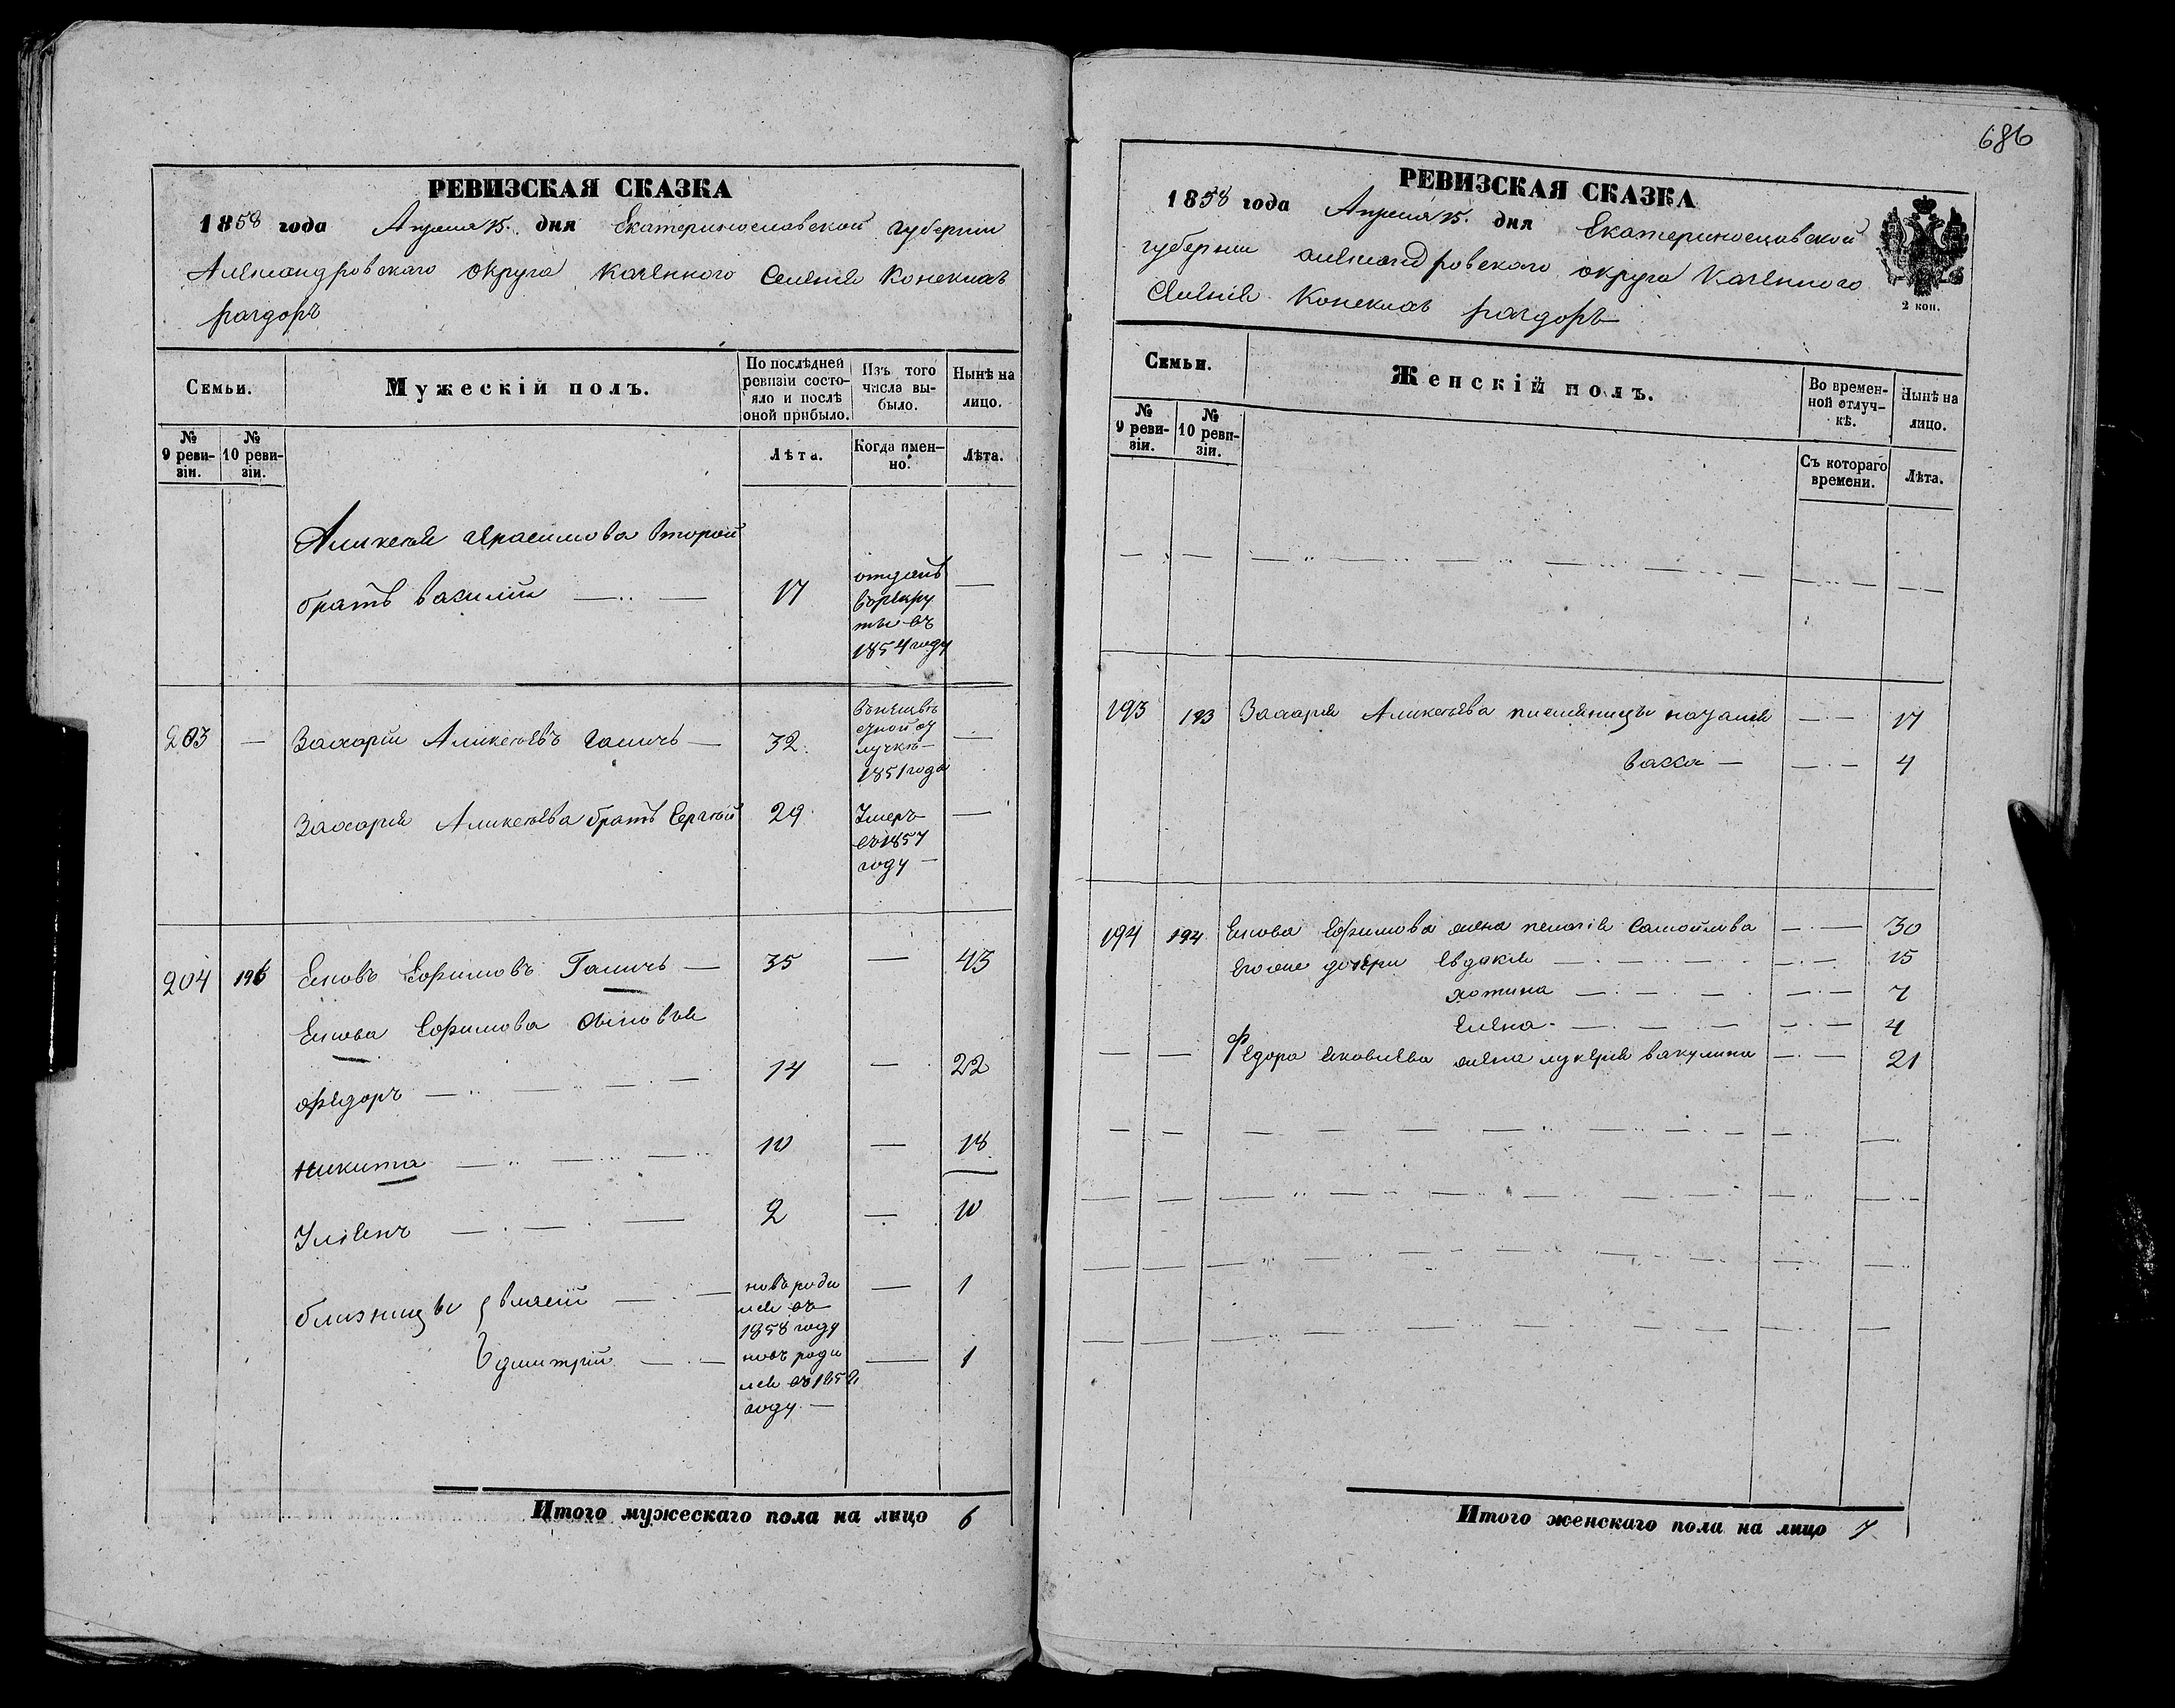 РЕВИЗСКАЯ СКАЗКА
1858 года Апреля 15. дня Екатеринославской губернии
Александровского округа казенного селенія Конскихъ
раздоръ
Семьи.
Мужескій полъ.
По послѣдней ревизіи состо-яло и послѣ оной прибыло.
Изъ того числа вы-было.
Нынѣ на лицо.
№ 9 реви-зіи.
№ 10 реви-зіи.
Лѣта.
Когда имен-но.
Лѣта.
Аликсея герасимова второй
братъ василий — 17 отданъ в рекруты въ 1854 году —
203 — Захарій Аликсѣевъ Галичь — 32. 1851 года —
Захарія Аликсѣева братъ Сергѣй 29 Умеръ въ 1857 году — —
204 196 Яковъ Ефимовъ Галичь — 35 — 43
Якова Ефимова сыновья
федоръ — 14 — 22
никита — 10 — 18
Уліянъ — 2 — 10
близницы власій — новъ роди лся въ 1858 году — 1
дмитрій — новъ роди лся въ 1858 году. — — 1
Итого мужескаго пола на лицо 6
686
РЕВИЗСКАЯ СКАЗКА
1858 года Апреля 15. дня Екатеринославской
губернии александровского округа казенного
селенія Конскихъ раздоръ
2 коп.
Семьи.
Женскій полъ.
Во времен-ной отлуч-кѣ.
Нынѣ на лицо.
№ 9 реви-зіи.
№ 10 реви-зіи.
Съ котораго времени.
Лѣта.
193 193 Захарія Аликсѣева племяницы наталія — 17
васса — — 4
194 194. Якова Ефимова жена пелагія самойлова — 30
Егоже дочери Евдакія — 15
хотина — 7
Елена — 4
— — Федора яковлева жена лукерія вакулина — 21
Итого женскаго пола на лицо 7